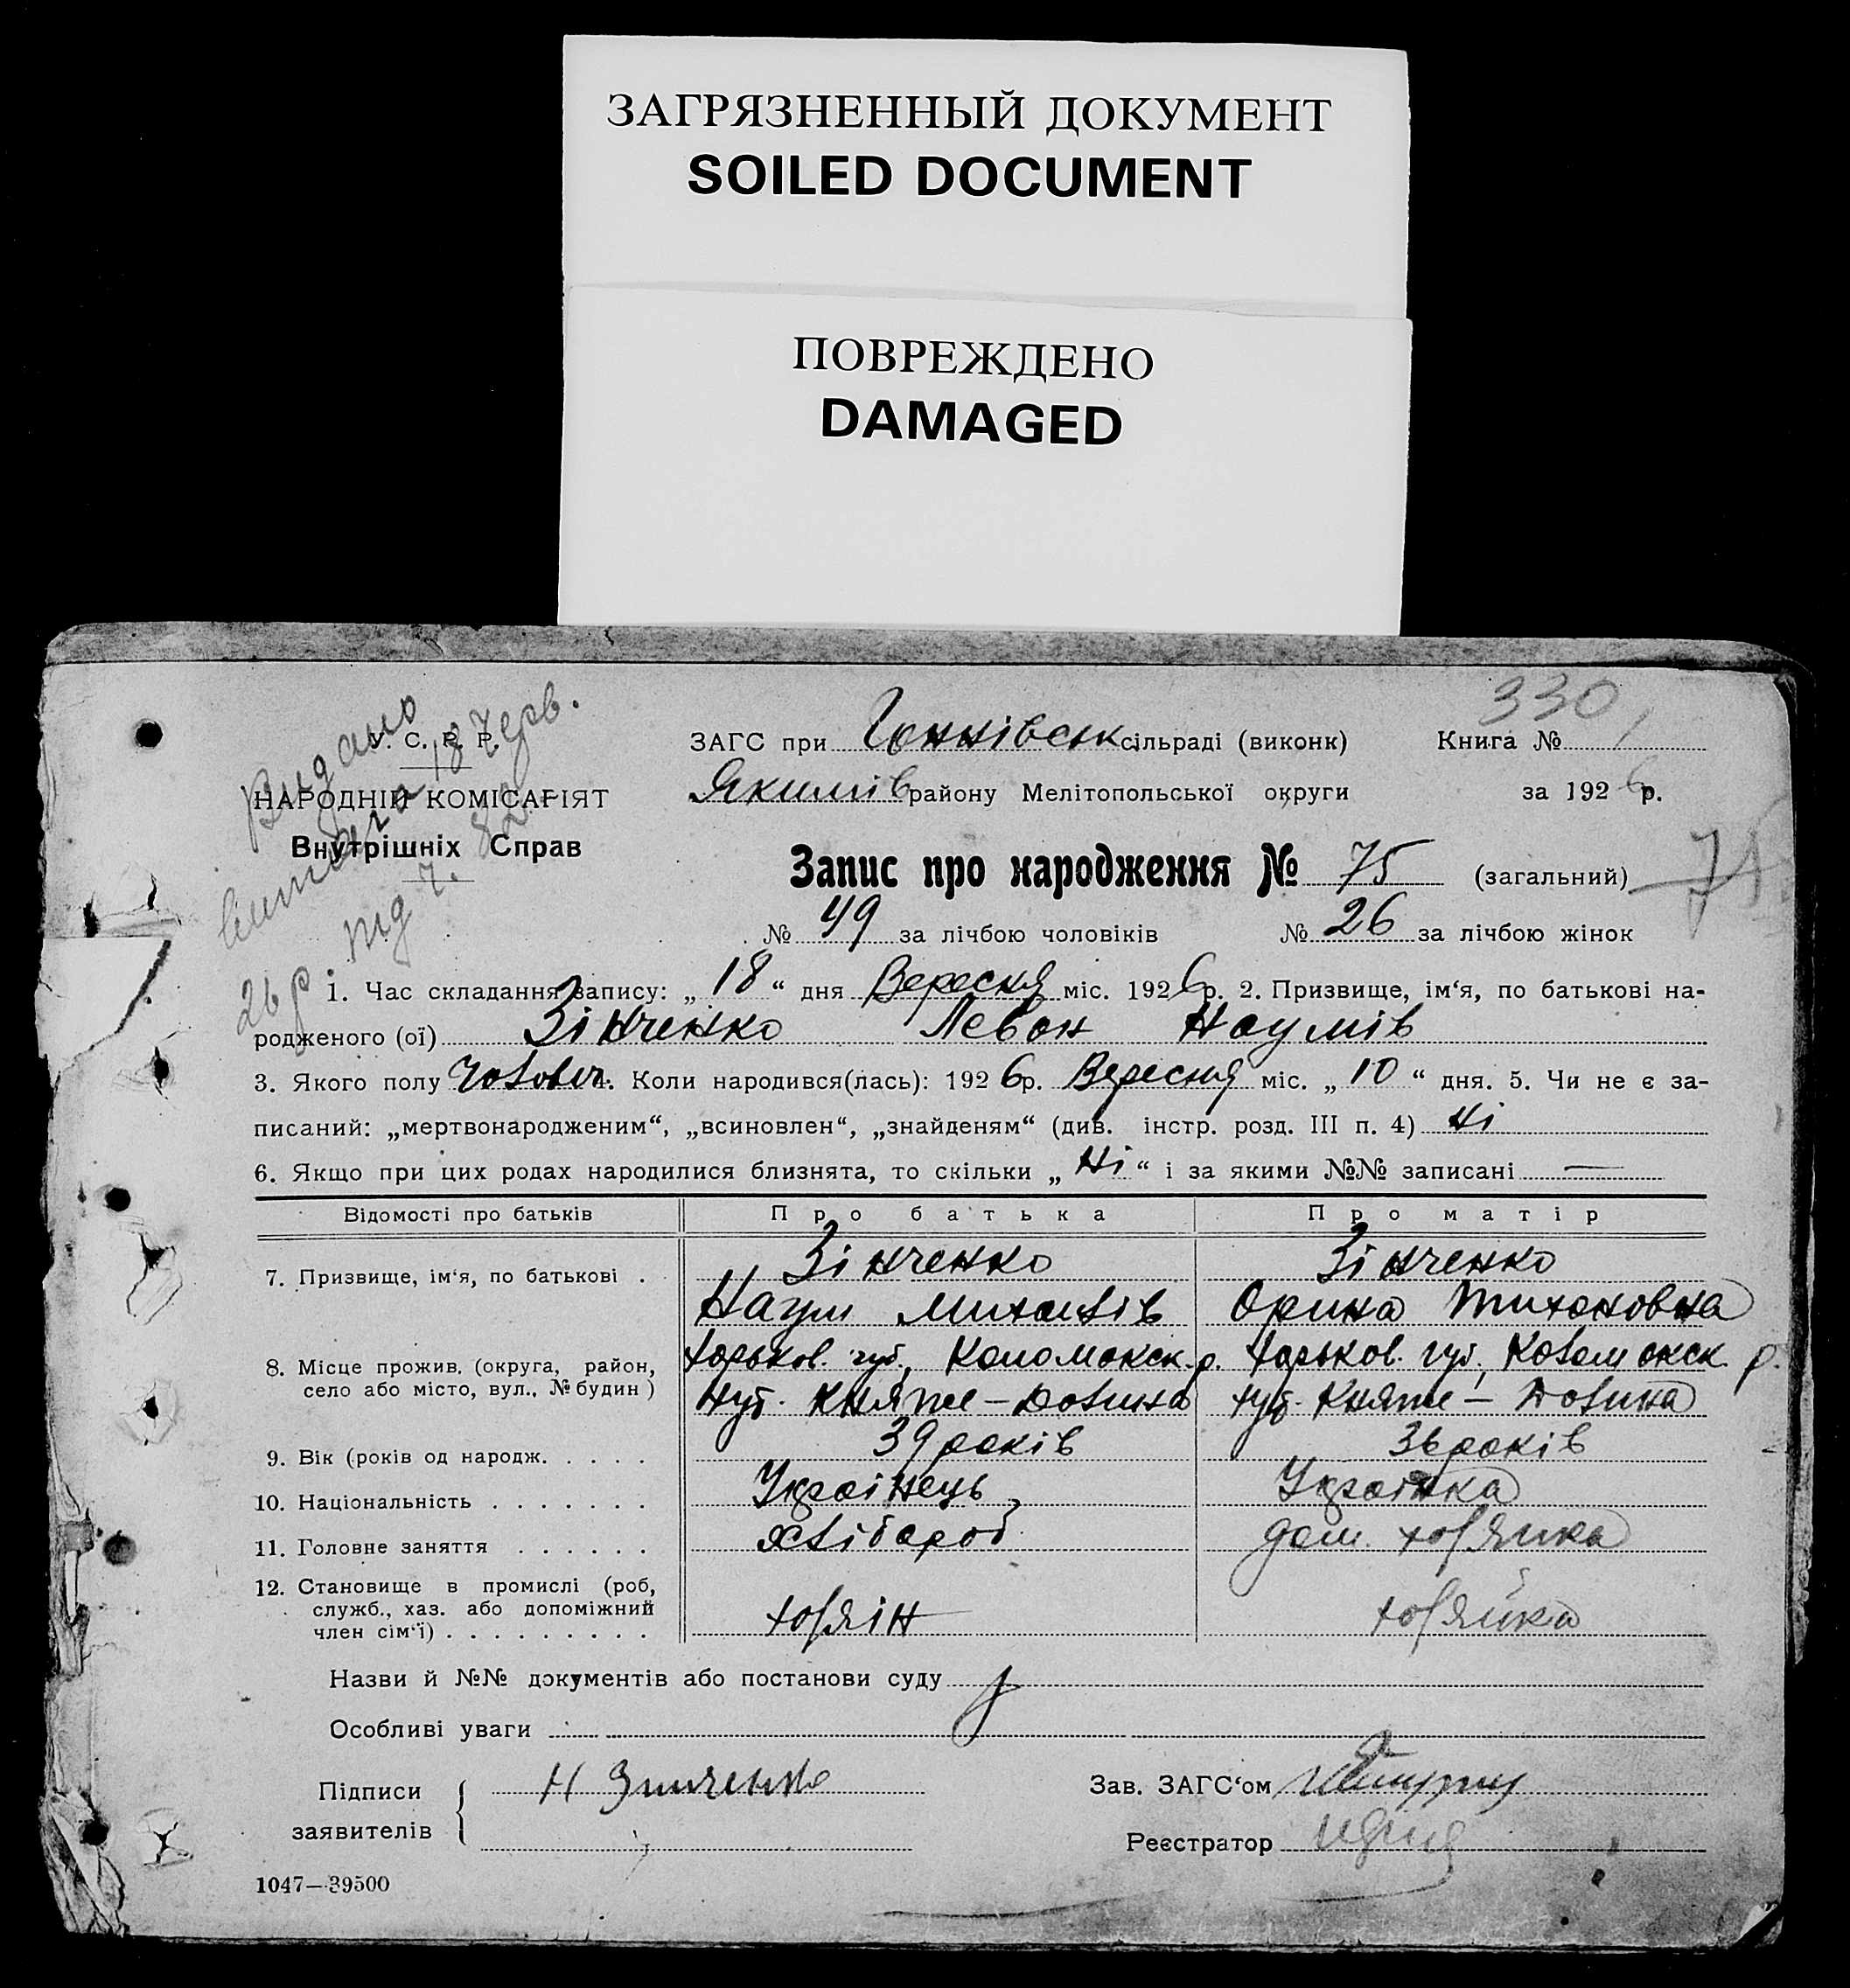 ЗАГРЯЗНЕННЫЙ ДОКУМЕНТ
SOILED DOCUMENT
ПОВРЕЖДЕНО
DAMAGED
330
Видано
18 Черв.
26 р
У. С. Р. Р.
НАРОДНІЙ КОМІСАРІЯТ
Внутрішніх Справ
ЗАГС при сільраді (виконк) Книга №
Якимів району Мелітопольської округи за 1926 р.
Запис про народження № 75 (загальний)
№ 49 за лічбою чоловіків № 26 за лічбою жінок
1. Час складання запису: „ 18 “ дня Вересня міс. 1926 р. 2. Призвище, ім‘я, по батькові на-
родженого (ої) Зінченко Левон Наумів
3. Якого полу Чолович. Коли народився(лась): 1926 р. Вересня міс. „ 10 “ дня. 5. Чи не є за-
писаний: „мертвонародженим“, „всиновлен“, „знайденям“ (див. інстр. розд. III п. 4) Ні
6. Якщо при цих родах народилися близнята, то скільки „ Ні “ і за якими №№ записані —
Відомості про батьків Про батька Про матір
7. Призвище, ім‘я, по батькові . Зінченко Зінченко
Наум Михайлів Орина Тихоновна
8. Місце прожив. (округа, район, Харьков. губ., Коломакск. р. Харьков. губ., Коломакск. р.
село або місто, вул., № будин ) Хут. Княже – Долина хут. Княже – Долина
9. Вік (років од народж. . . . . 39 років 36 років
10. Національність . . . . . . . Українець Українка
11. Головне заняття . . . . . . Хлібороб дом. хозяйка
12. Становище в промислі (роб,
служб., хаз. або допоміжний
член сім‘ї) . . . . . . . . . хозяїн хозяйка
Назви й №№ документів або постанови суду
Особливі уваги
Підписи
заявителів
Н Зинченко
Зав. ЗАГС‘ом
Реєстратор
1047—39500